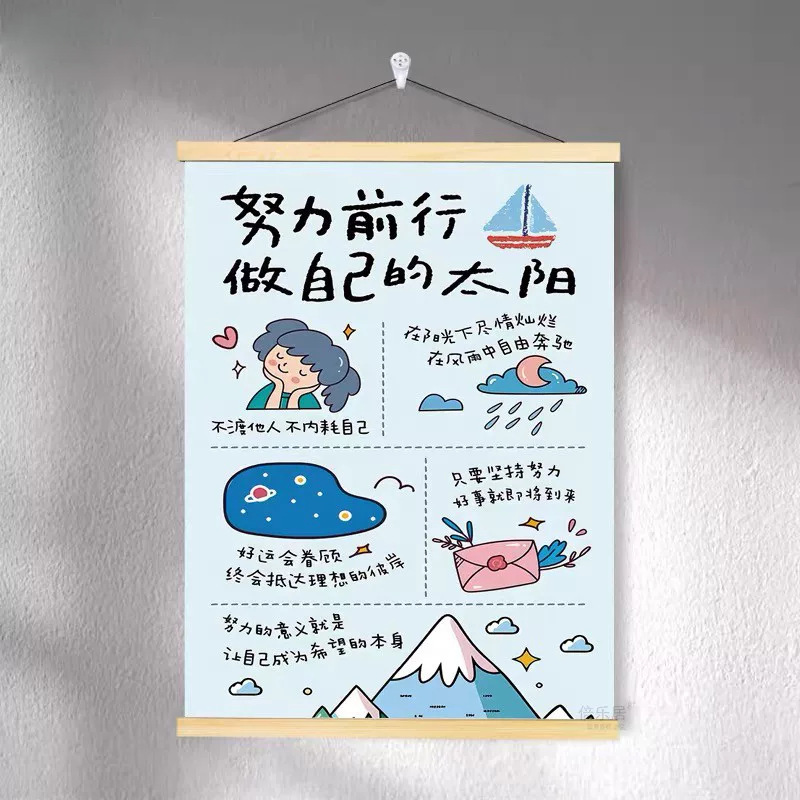 努力前行
做自己的太阳
在阳光下尽情灿烂
在风雨中自由奔驰
不渡他人 不内耗自己
只要坚持努力
好事就即将到来
好运会眷顾
终会抵达理想的彼岸
努力的意义就是
让自己成为希望的本身
倍乐居